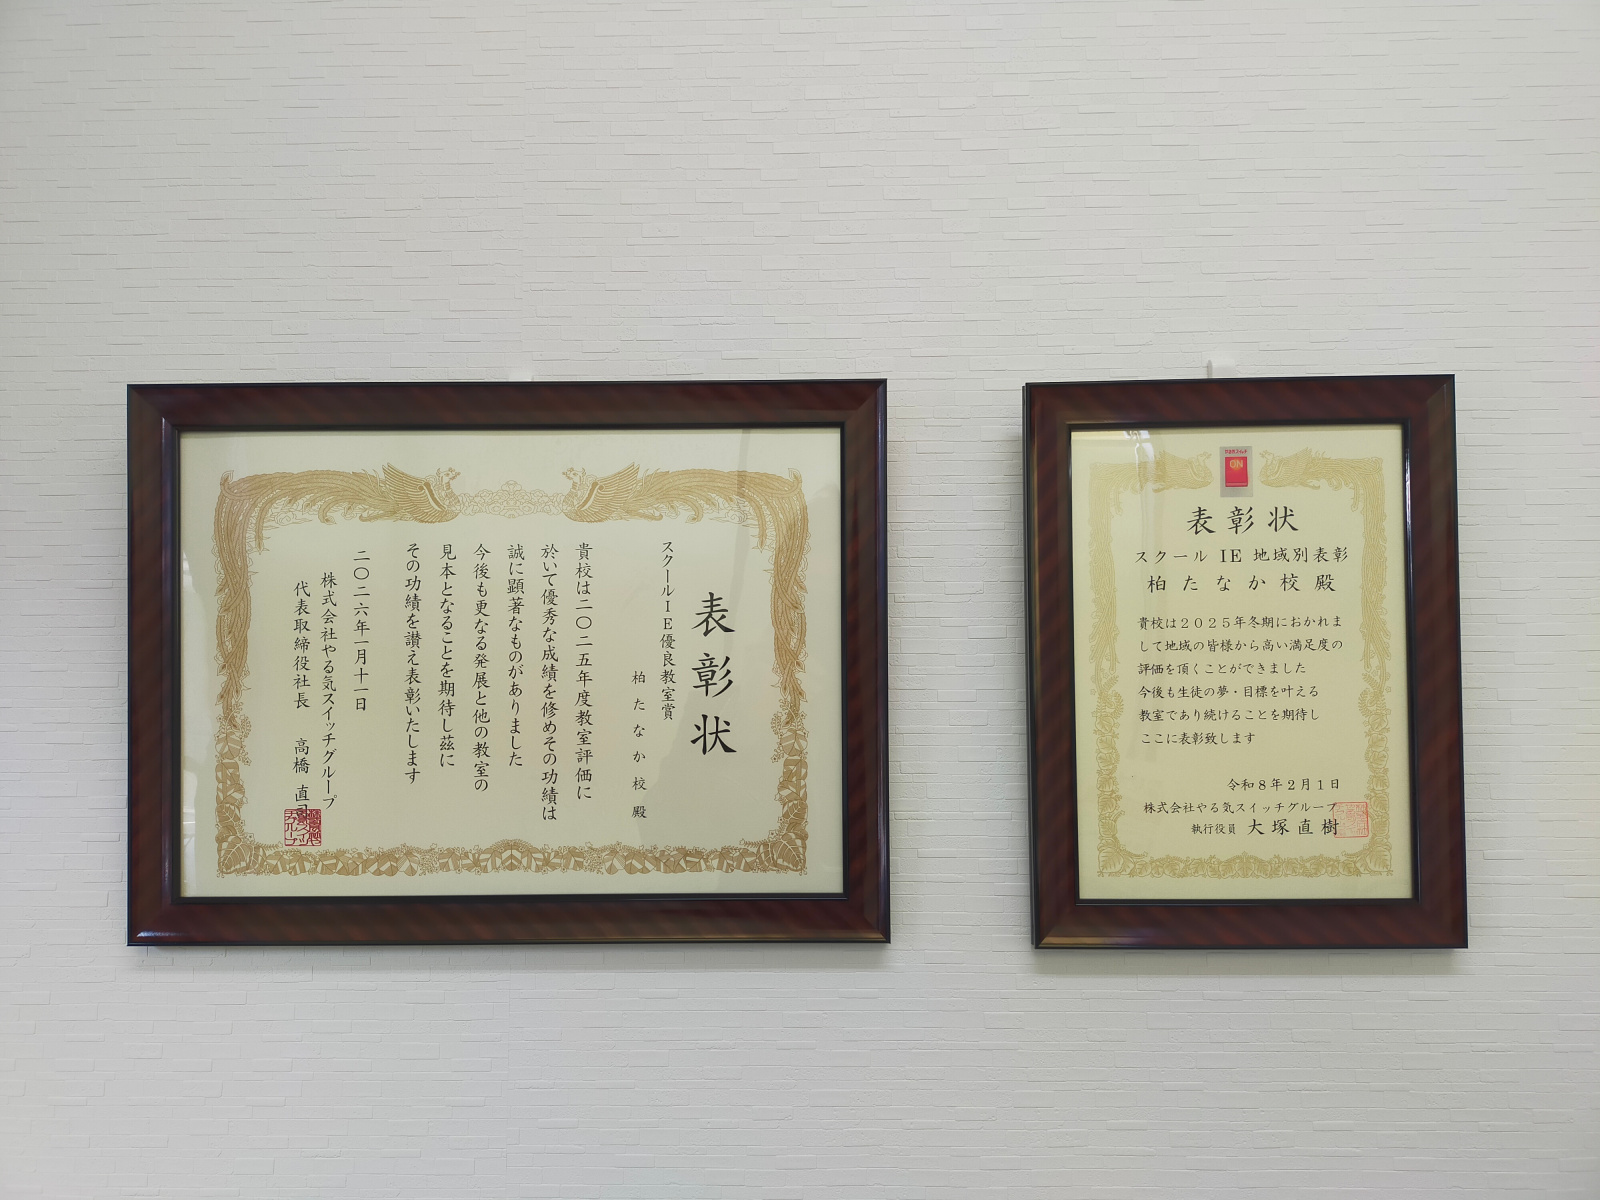 表彰状
スクールＩＥ優良教室賞
柏たなか校殿
貴校は二〇二五年度教室評価に
於いて優秀な成績を修めその功績は
誠に顕著なものがありました
今後も更なる発展と他の教室の
見本となることを期待し茲に
その功績を讃え表彰いたします
二〇二六年一月十一日
株式会社やる気スイッチグループ
代表取締役社長 高橋 直司
表彰状
スクール IE 地域別表彰
柏たなか校殿
貴校は２０２５年冬期におかれま
して地域の皆様から高い満足度の
評価を頂くことができました
今後も生徒の夢・目標を叶える
教室であり続けることを期待し
ここに表彰致します
令和８年２月１日
株式会社やる気スイッチグループ
執行役員 大塚直樹